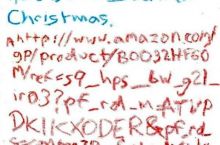 Christmas.
http://www.amazon.com/
gp/product/B0032HF60
M/ref=s9_hps_bw_g21_
ir03?pf_rd_m=ATVP
DKIKX0DER&pf_rd_